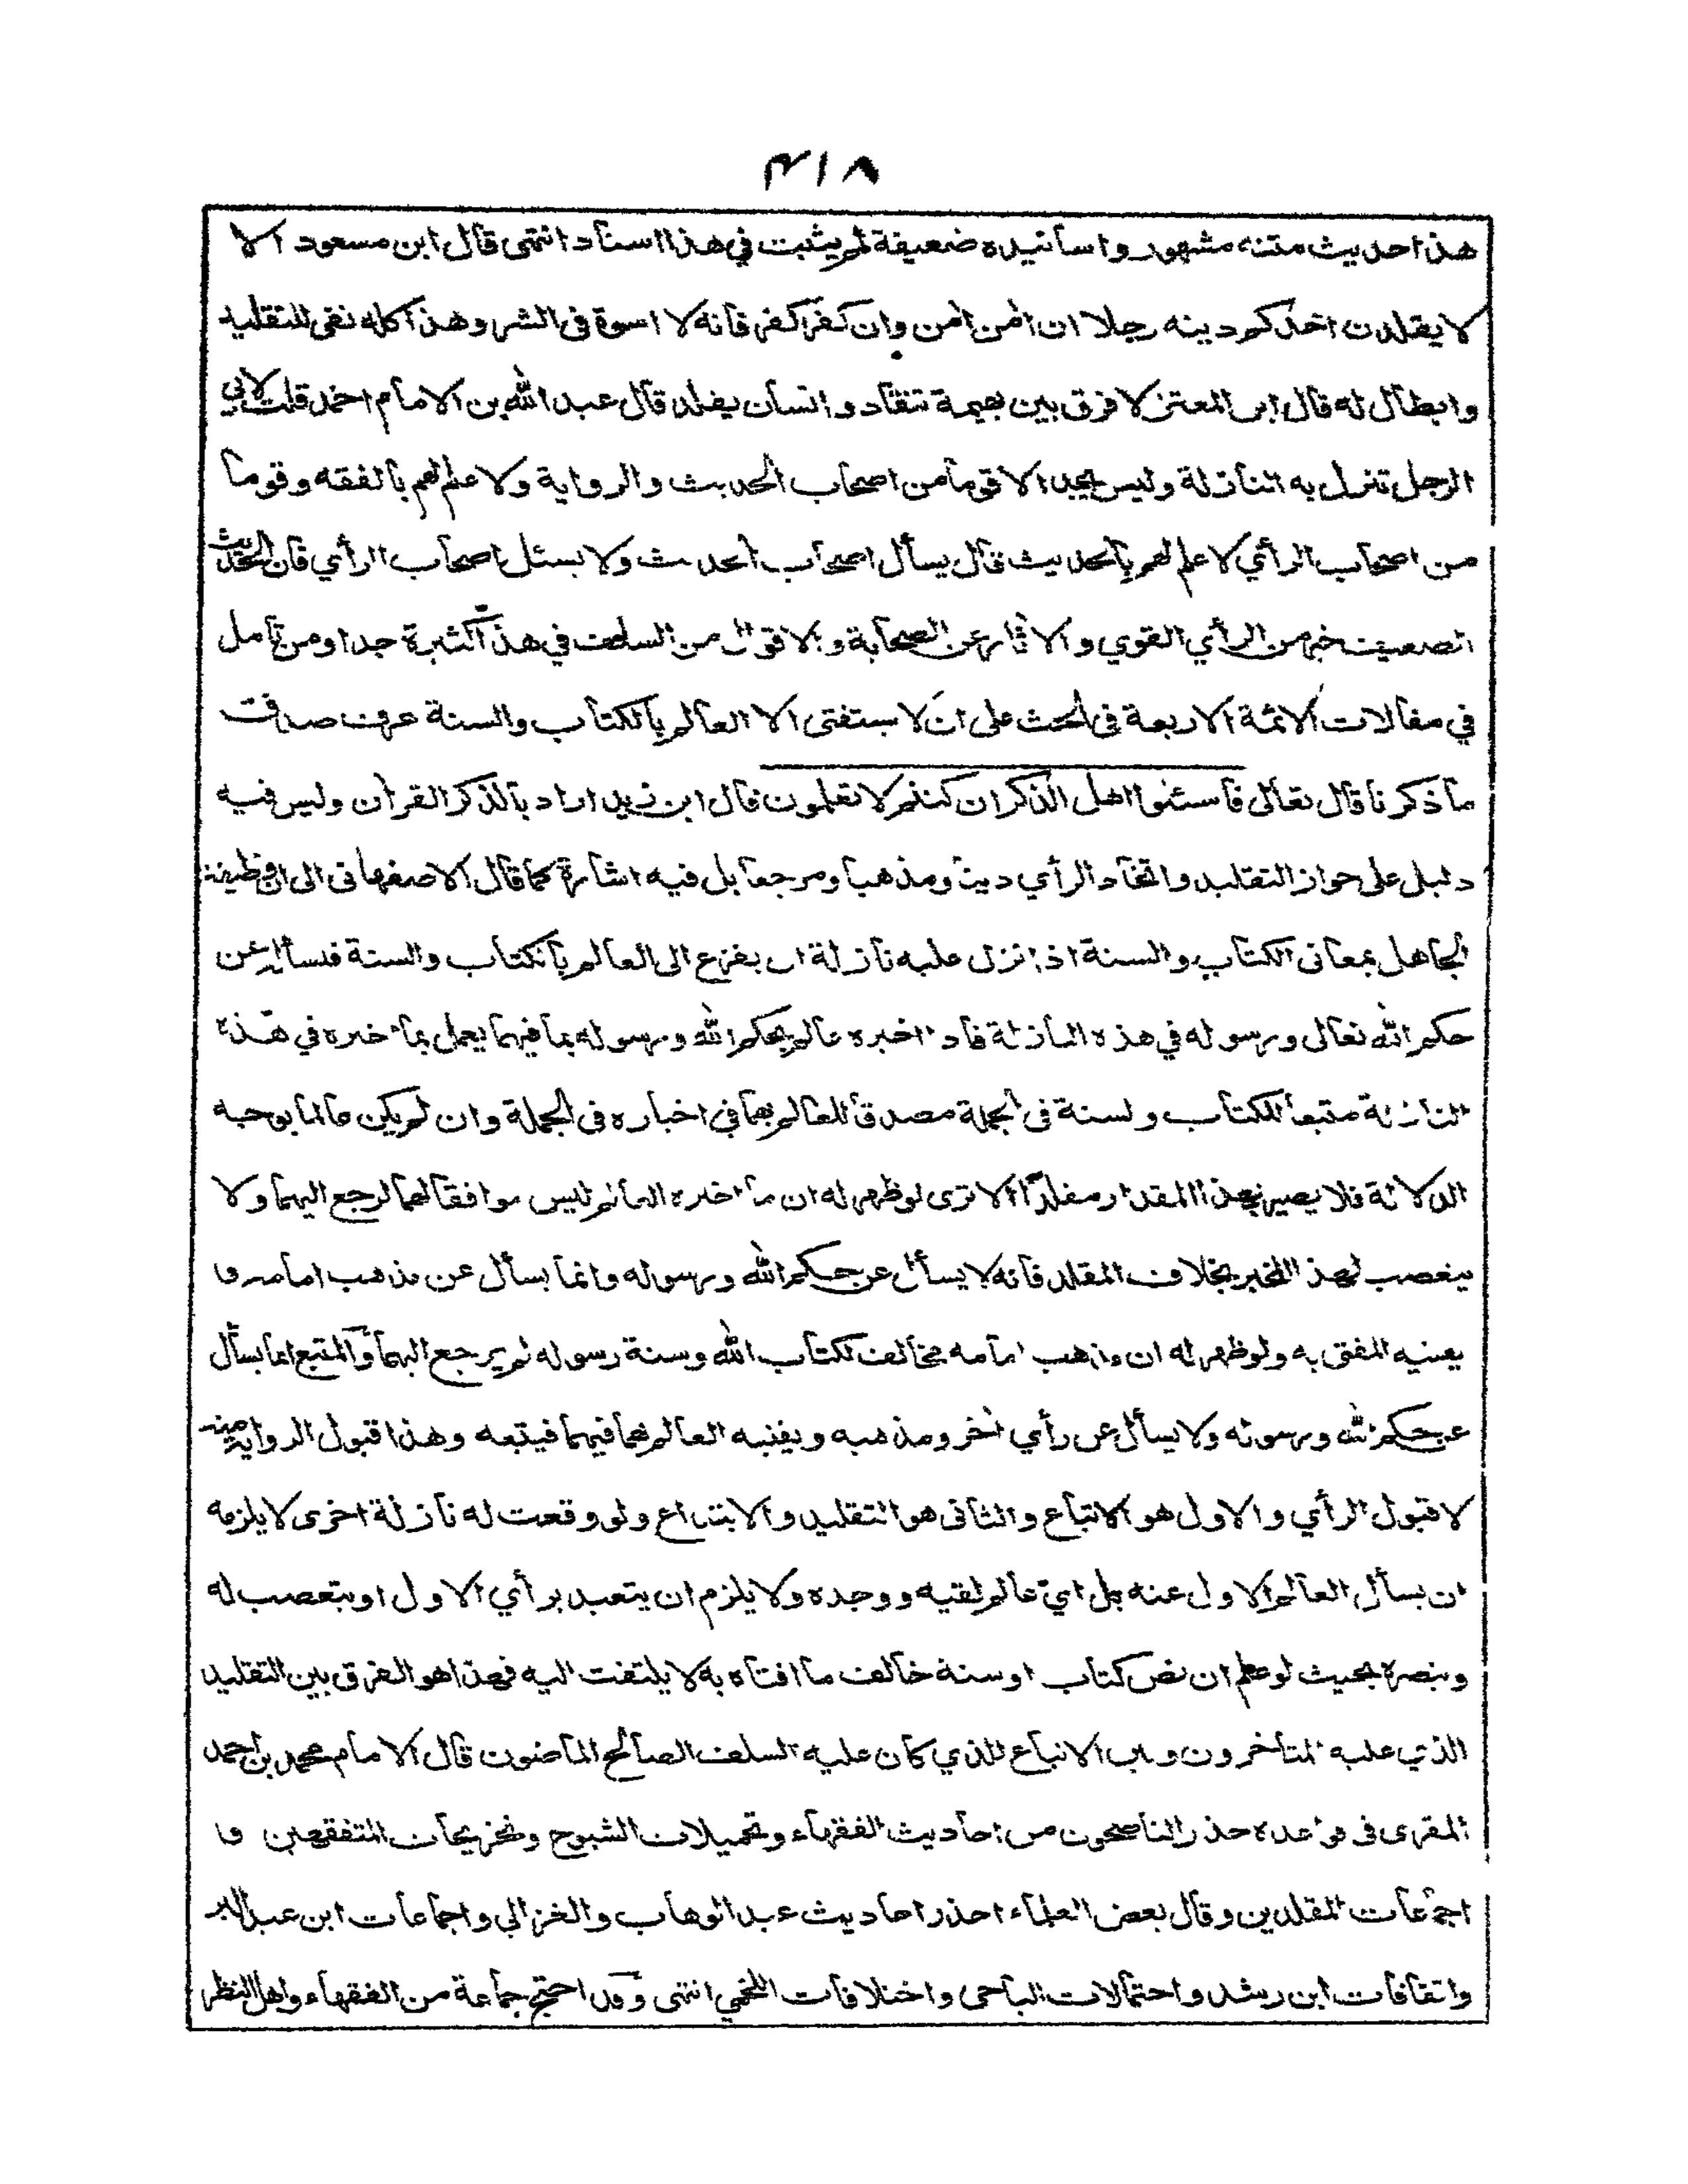 ٣١٨
هذا حديث متنه مشهور واسانيده ضعيفة لم يثبت في هذا اسناد انتهى قال ابن مسعود الا
لا يقلدن احدكم دينه رجلا ان امن امن وان كفر كفر فانه لا اسوة فى الشر وهذا كله نفي للتقليد
وابطال له قال ابن المعتز لا فرق بين بهيمة تنقاد وانسان يقلد قال عبد الله بن الامام احمد قلت لابي
الرجل تنزل به النازلة وليس يجد الا قوما من اصحاب الحديث والرواية ولا علم لهم بالفقه وقوما
من اصحاب الرأي لا علم لهم بالحديث قال يسأل اصحاب الحديث ولا يسئل اصحاب الرأي فان الحديث
الضعيف خير من الرأي القوي والاثار عن الصحابة والاقوال من السلف في هذا كثيرة جدا ومن تأمل
في مقالات الائمة الاربعة فى الحث على ان لا يستفتى الا العالم بالكتاب والسنة عرف صدق
ما ذكرنا قال تعالى فاسئلوا اهل الذكر ان كنتم لا تعلمون قال ابن زيد اراد بالذكر القرآن وليس فيه
دليل على جواز التقليد واتخاذ الرأي دينا ومذهبا ومرجعا بل فيه اشارة كما قال الاصفهانى الى ان وظيفة
الجاهل بمعانى الكتاب والسنة اذا نزل عليه نازلة ان يفزع الى العالم بالكتاب والسنة فيسأله عن
حكم الله تعالى ورسوله في هذه النازلة فاذا اخبره عالم بحكم الله ورسوله بما فيهما يعمل بما اخبره في هذه
النازلة متبعا للكتاب ولسنة فى الجملة مصدقا للعالم بهما في اخباره فى الجملة وان لم يكن عالما بوجه
الدلالة فلا يصير بهذا المقدار مقلدا الا ترى لو ظهر له ان ما اخبره العالم ليس موافقا لهما لرجع اليهما ولا
يتعصب لهذا المخبر بخلاف المقلد فانه لا يسأل عن حكم الله ورسوله وانما يسأل عن مذهب امامه وما
يعنيه المفتى به ولو ظهر له ان مذهب امامه مخالف لكتاب الله وسنة رسوله لم يرجع اليهما والمتبع انما يسأل
عن حكم الله ورسوله ولا يسأل عن رأي اخر ومذهبه ويفتيه العالم بما فيهما فيتبعه وهذا قبول الرواية منه
لا قبول الرأي والاول هو الاتباع والثانى هو التقليد والابتداع ولو وقعت له نازلة اخرى لا يلزمه
ان يسأل العالم الاول عنه بل اي عالم لقيه ووجده ولا يلزم ان يتعبد برأي الاول او يتعصب له
وينصره بحيث لو علم ان نص كتاب او سنة خالف ما افتاه به لا يلتفت اليه فهذا هو الفرق بين التقليد
الذي عليه المتأخرون وبين الاتباع للذي كان عليه السلف الصالح الماضون قال الامام محمد بن احمد
المقرى فى قواعده حذر الناصحون من احاديث الفقهاء وتحميلات الشيوخ وتخريجات المتفقهين و
اجماعات المقلدين وقال بعض العلماء احذر احاديث عبد الوهاب والغزالي واجماعات ابن عبد البر
واتفاقات ابن رشد واحتمالات الباجى واختلافات اللخمي انتهى وقد احتج جماعة من الفقهاء واهل النظر